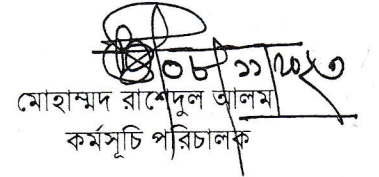 ০৮/১১/২০২৩
মোহাম্মদ রাশেদুল আলম
কর্মসূচি পরিচালক